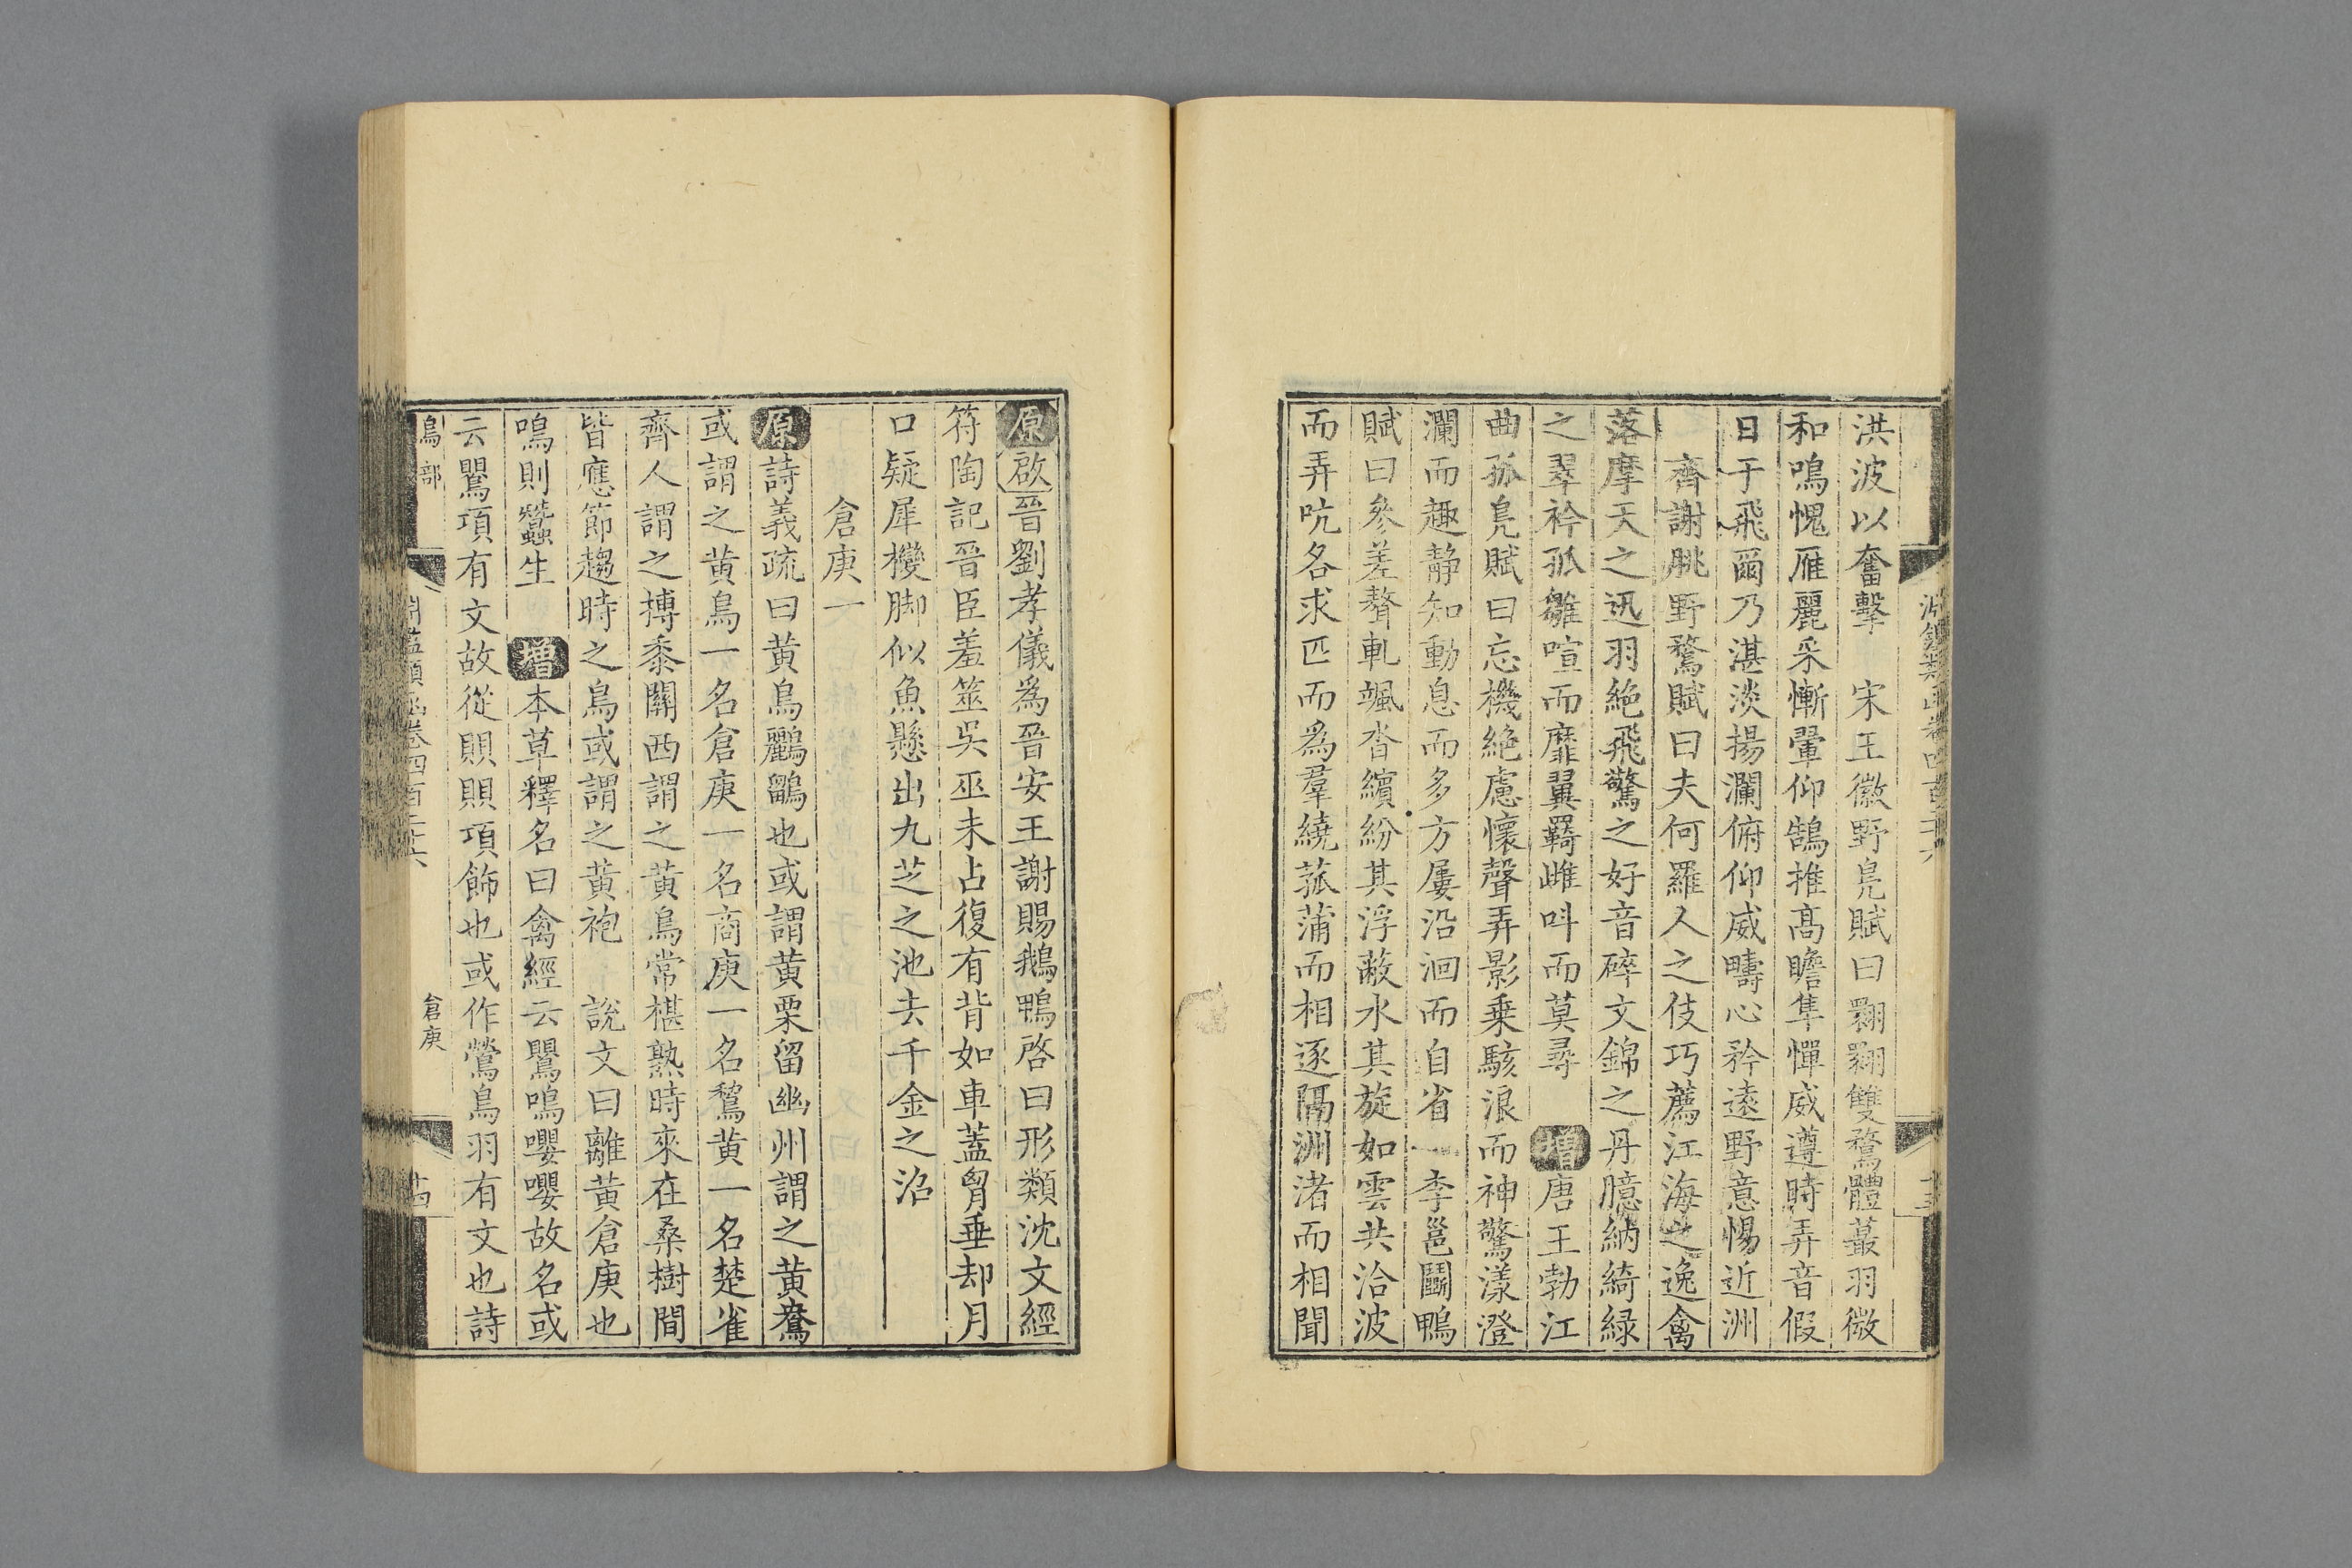 洪波以奮擊　宋王徽野鳧賦曰翾翾雙鶩體蕞羽微
和鳴愧雁麗采慚翬仰鵠推高瞻隼憚威遵時弄音假
日于飛爾乃湛淡揚瀾俯仰威疇心矜遠野意惕近洲
齊謝朓野鶩賦曰夫何羅人之伎巧薦江海之逸禽
落摩天之迅羽絶飛驚之好音碎文錦之丹臆納綺綠
之翠衿孤雛喧而靡翼羇雌呌而莫尋　增唐王勃江
曲孤鳧賦曰忘機絶慮懷聲弄影乗駭浪而神驚漾澄
瀾而趣静知動息而多方屢沿洄而自省　李邕鬭鴨
賦曰參差聱軋颯沓繽紛其浮蔽水其旋如雲共洽波
而弄吭各求匹而為羣繞菰蒲而相逐隔洲渚而相聞
原啟晉劉孝儀為晉安王謝賜鵝鴨啓曰形類沈文經
符陶記晉臣羞筮吳巫未占復有背如車蓋胷垂却月
口疑犀㰖脚似魚懸出九芝之池去千金之沼
倉庚一
原詩義疏曰黄鳥鸝鶹也或謂黄栗留幽州謂之黄鶯
或謂之黄鳥一名倉庚一名商庚一名鵹黄一名楚雀
齊人謂之摶黍關西謂之黄鳥常椹熟時來在桑樹間
皆應節趨時之鳥或謂之黄袍　說文曰離黄倉庚也
鳴則蠶生　增本草釋名曰禽經云鸎鳴嚶嚶故名或
云鸎項有文故從賏賏項飾也或作鶯鳥羽有文也詩
鳥部
淵鑑類函卷四百二十六
倉庚
十四